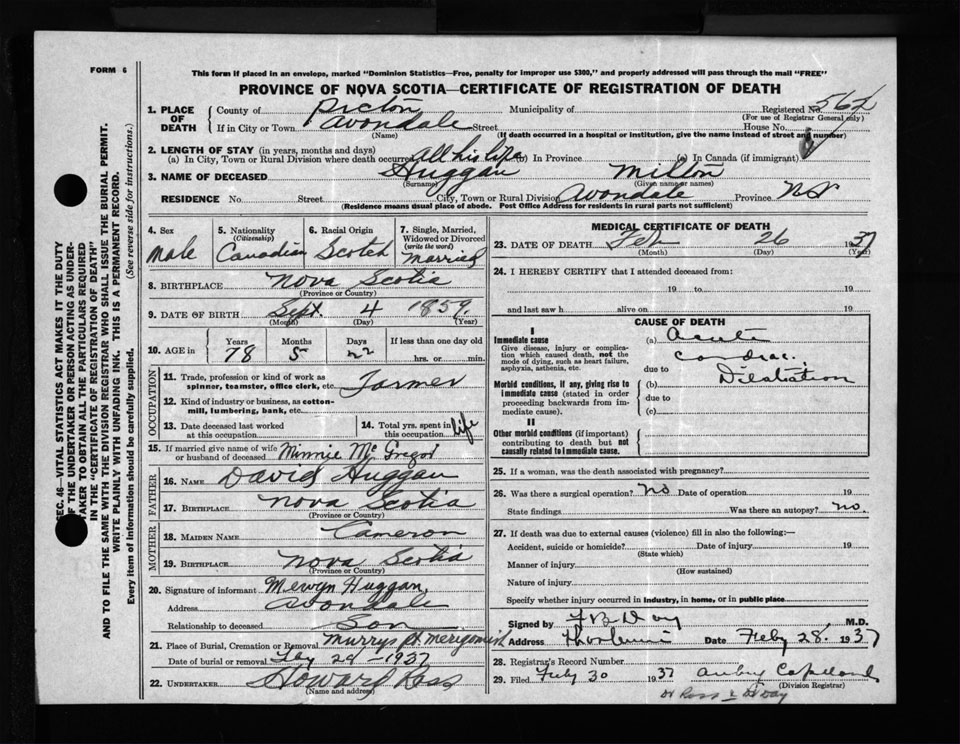 FORM 6
This form if placed in an envelope, marked "Dominion Statistics—Free, penalty for improper use $300," and properly addressed will pass through the mail "FREE"
PROVINCE OF NOVA SCOTIA—CERTIFICATE OF REGISTRATION OF DEATH
1. PLACE OF DEATH County of Pictou Municipality of Registered No. 562
(For use of Registrar General only)
If in City or Town Avondale Street House No.
(Name) (If death occurred in a hospital or institution, give the name instead of street and number)
2. LENGTH OF STAY (in years, months and days)
(a) In City, Town or Rural Division where death occurred All his life (b) In Province (c) In Canada (if immigrant)
3. NAME OF DECEASED Huggan Milton
(Surname) (Given name or names)
RESIDENCE No. Street City, Town or Rural Division Avondale Province N.S.
(Residence means usual place of abode. Post Office Address for residents in rural parts not sufficient)
4. Sex Male
5. Nationality (Citizenship) Canadian
6. Racial Origin Scotch
7. Single, Married, Widowed or Divorced (write the word) Married
8. BIRTHPLACE Nova Scotia
(Province or Country)
9. DATE OF BIRTH Sept. 4 1859
(Month) (Day) (Year)
10. AGE in Years Months Days If less than one day old
78 5 22 hrs. or min.
OCCUPATION
11. Trade, profession or kind of work as spinner, teamster, office clerk, etc. Farmer
12. Kind of industry or business, as cotton-mill, lumbering, bank, etc.
13. Date deceased last worked at this occupation
14. Total yrs. spent in this occupation life
15. If married give name of wife or husband of deceased Minnie McGregor
FATHER
16. NAME David Huggan
17. BIRTHPLACE Nova Scotia
(Province or Country)
MOTHER
18. MAIDEN NAME Cameron
19. BIRTHPLACE Nova Scotia
(Province or Country)
20. Signature of informant Mervyn Huggan
Address Avondale
Relationship to deceased Son
21. Place of Burial, Cremation or Removal Murrys Pt Merigomish
Date of burial or removal 28-1937
22. UNDERTAKER Howard Ross
(Name and address)
MEDICAL CERTIFICATE OF DEATH
23. DATE OF DEATH Feb 26 1937
(Month) (Day) (Year)
24. I HEREBY CERTIFY that I attended deceased from:
19 to 19
and last saw h alive on 19
CAUSE OF DEATH
I
Immediate cause
Give disease, injury or complication which caused death, not the mode of dying, such as heart failure, asphyxia, asthenia, etc.
(a) Acute
Cardiac
due to Dilatation
Morbid conditions, if any, giving rise to immediate cause (stated in order proceeding backwards from immediate cause).
(b)
due to
(c)
II
Other morbid conditions (if important) contributing to death but not causally related to immediate cause.
25. If a woman, was the death associated with pregnancy?
26. Was there a surgical operation? no Date of operation 19
State findings Was there an autopsy? no.
27. If death was due to external causes (violence) fill in also the following:—
Accident, suicide or homicide? Date of injury 19
(State which)
Manner of injury
(How sustained)
Nature of injury
Specify whether injury occurred in industry, in home, or in public place
Signed by Day M.D.
Address Date Feby 28 1937
28. Registrar's Record Number
29. Filed Feby 30 1937 Aubry Copeland
(Division Registrar)
Dr Ross Dr Day
SEC. 46—VITAL STATISTICS ACT MAKES IT THE DUTY
OF THE UNDERTAKER OR PERSON ACTING AS UNDER-
TAKER TO OBTAIN ALL THE PARTICULARS REQUIRED
IN THE "CERTIFICATE OF REGISTRATION OF DEATH"
AND TO FILE THE SAME WITH THE DIVISION REGISTRAR WHO SHALL ISSUE THE BURIAL PERMIT.
WRITE PLAINLY WITH UNFADING INK. THIS IS A PERMANENT RECORD.
Every item of information should be carefully supplied. (See reverse side for instructions.)